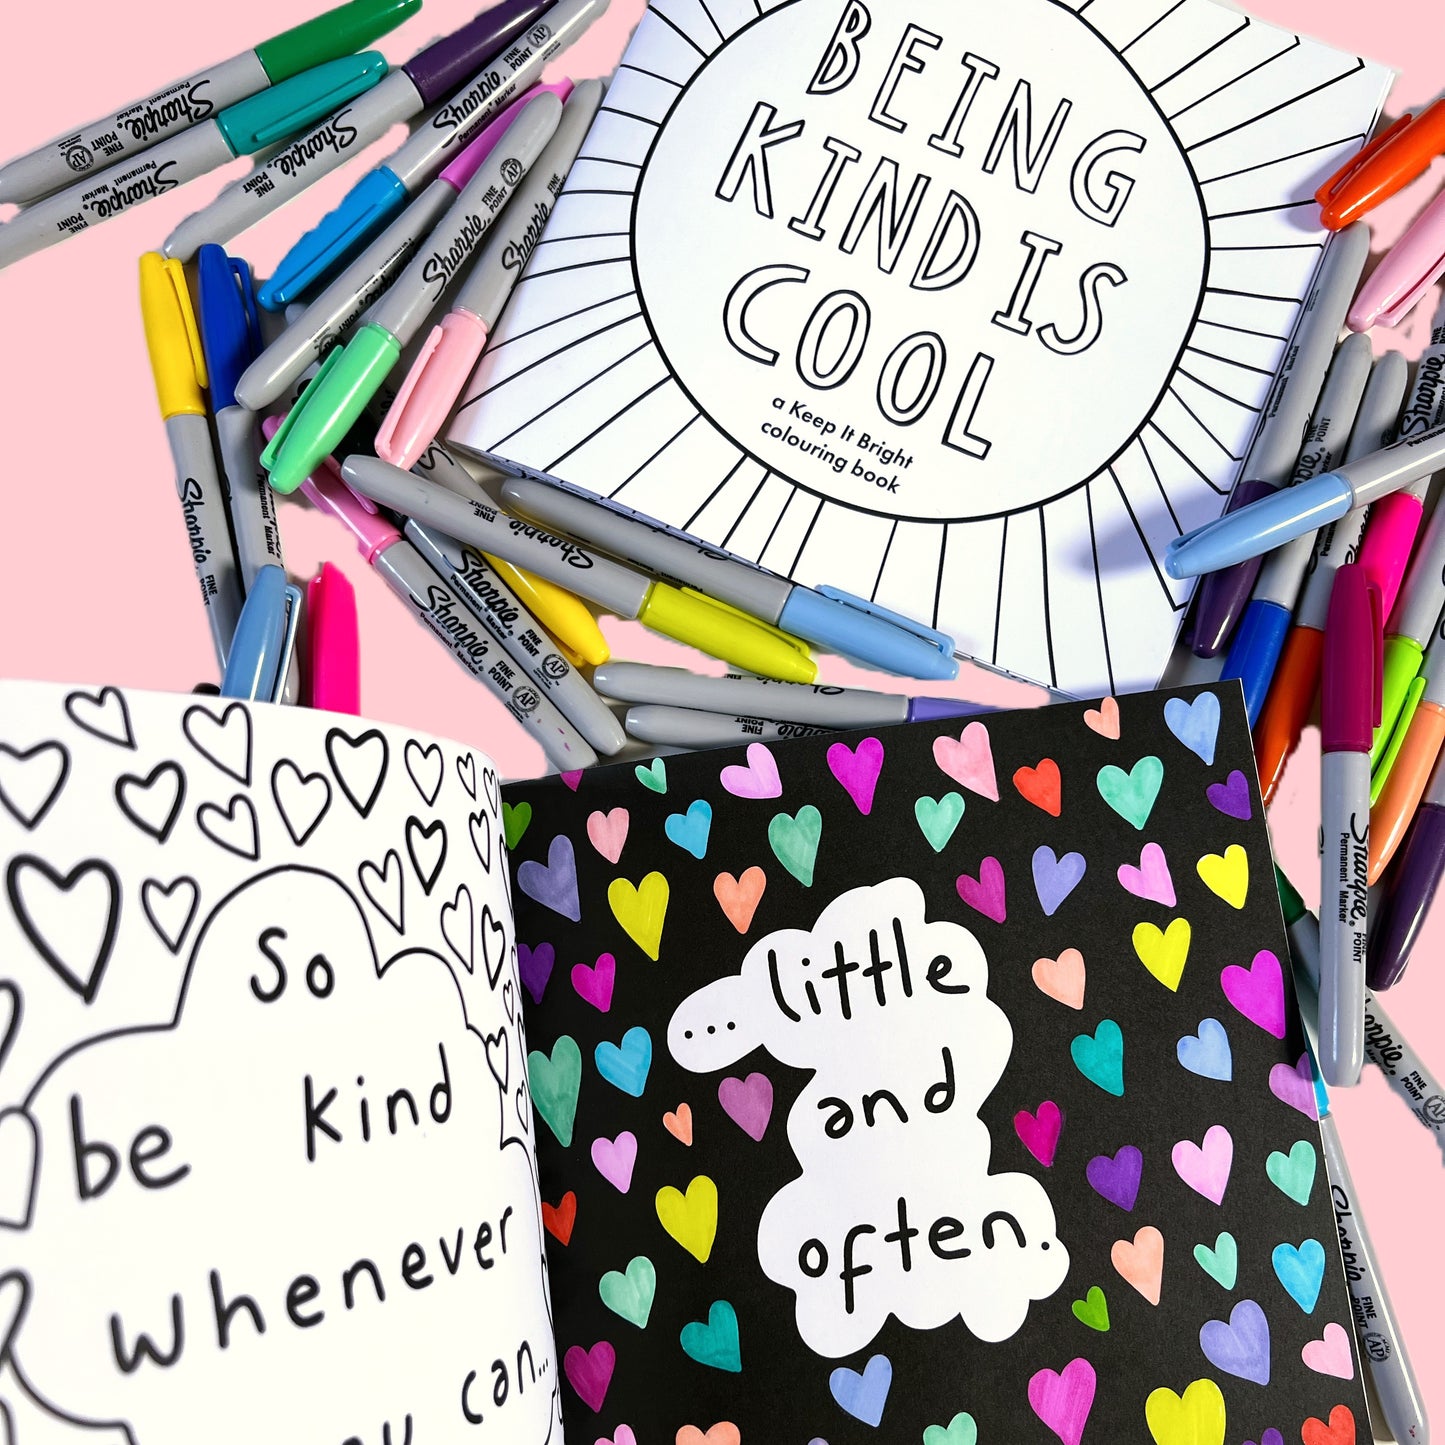 BEING
KIND IS
COOL
a Keep It Bright
colouring book
So
be kind
whenever
can...
... little
and
often.
Sharpie
Permanent Marker
FINE
POINT
AP
Sharpie
Permanent Marker
FINE
POINT
Sharpie
FINE
POINT
Sharpie
Permanent Marker
FINE
POINT
AP
Sharpie
FINE
POINT
AP
Sharpie
Sharpie
Permanent Marker
FINE
POINT
Sharpie
FINE
Sharpie
Permanent Marker
FINE
POINT
AP
Sharpie
FINE
POINT
AP
Sharpie
Permanent Marker
FINE
POINT